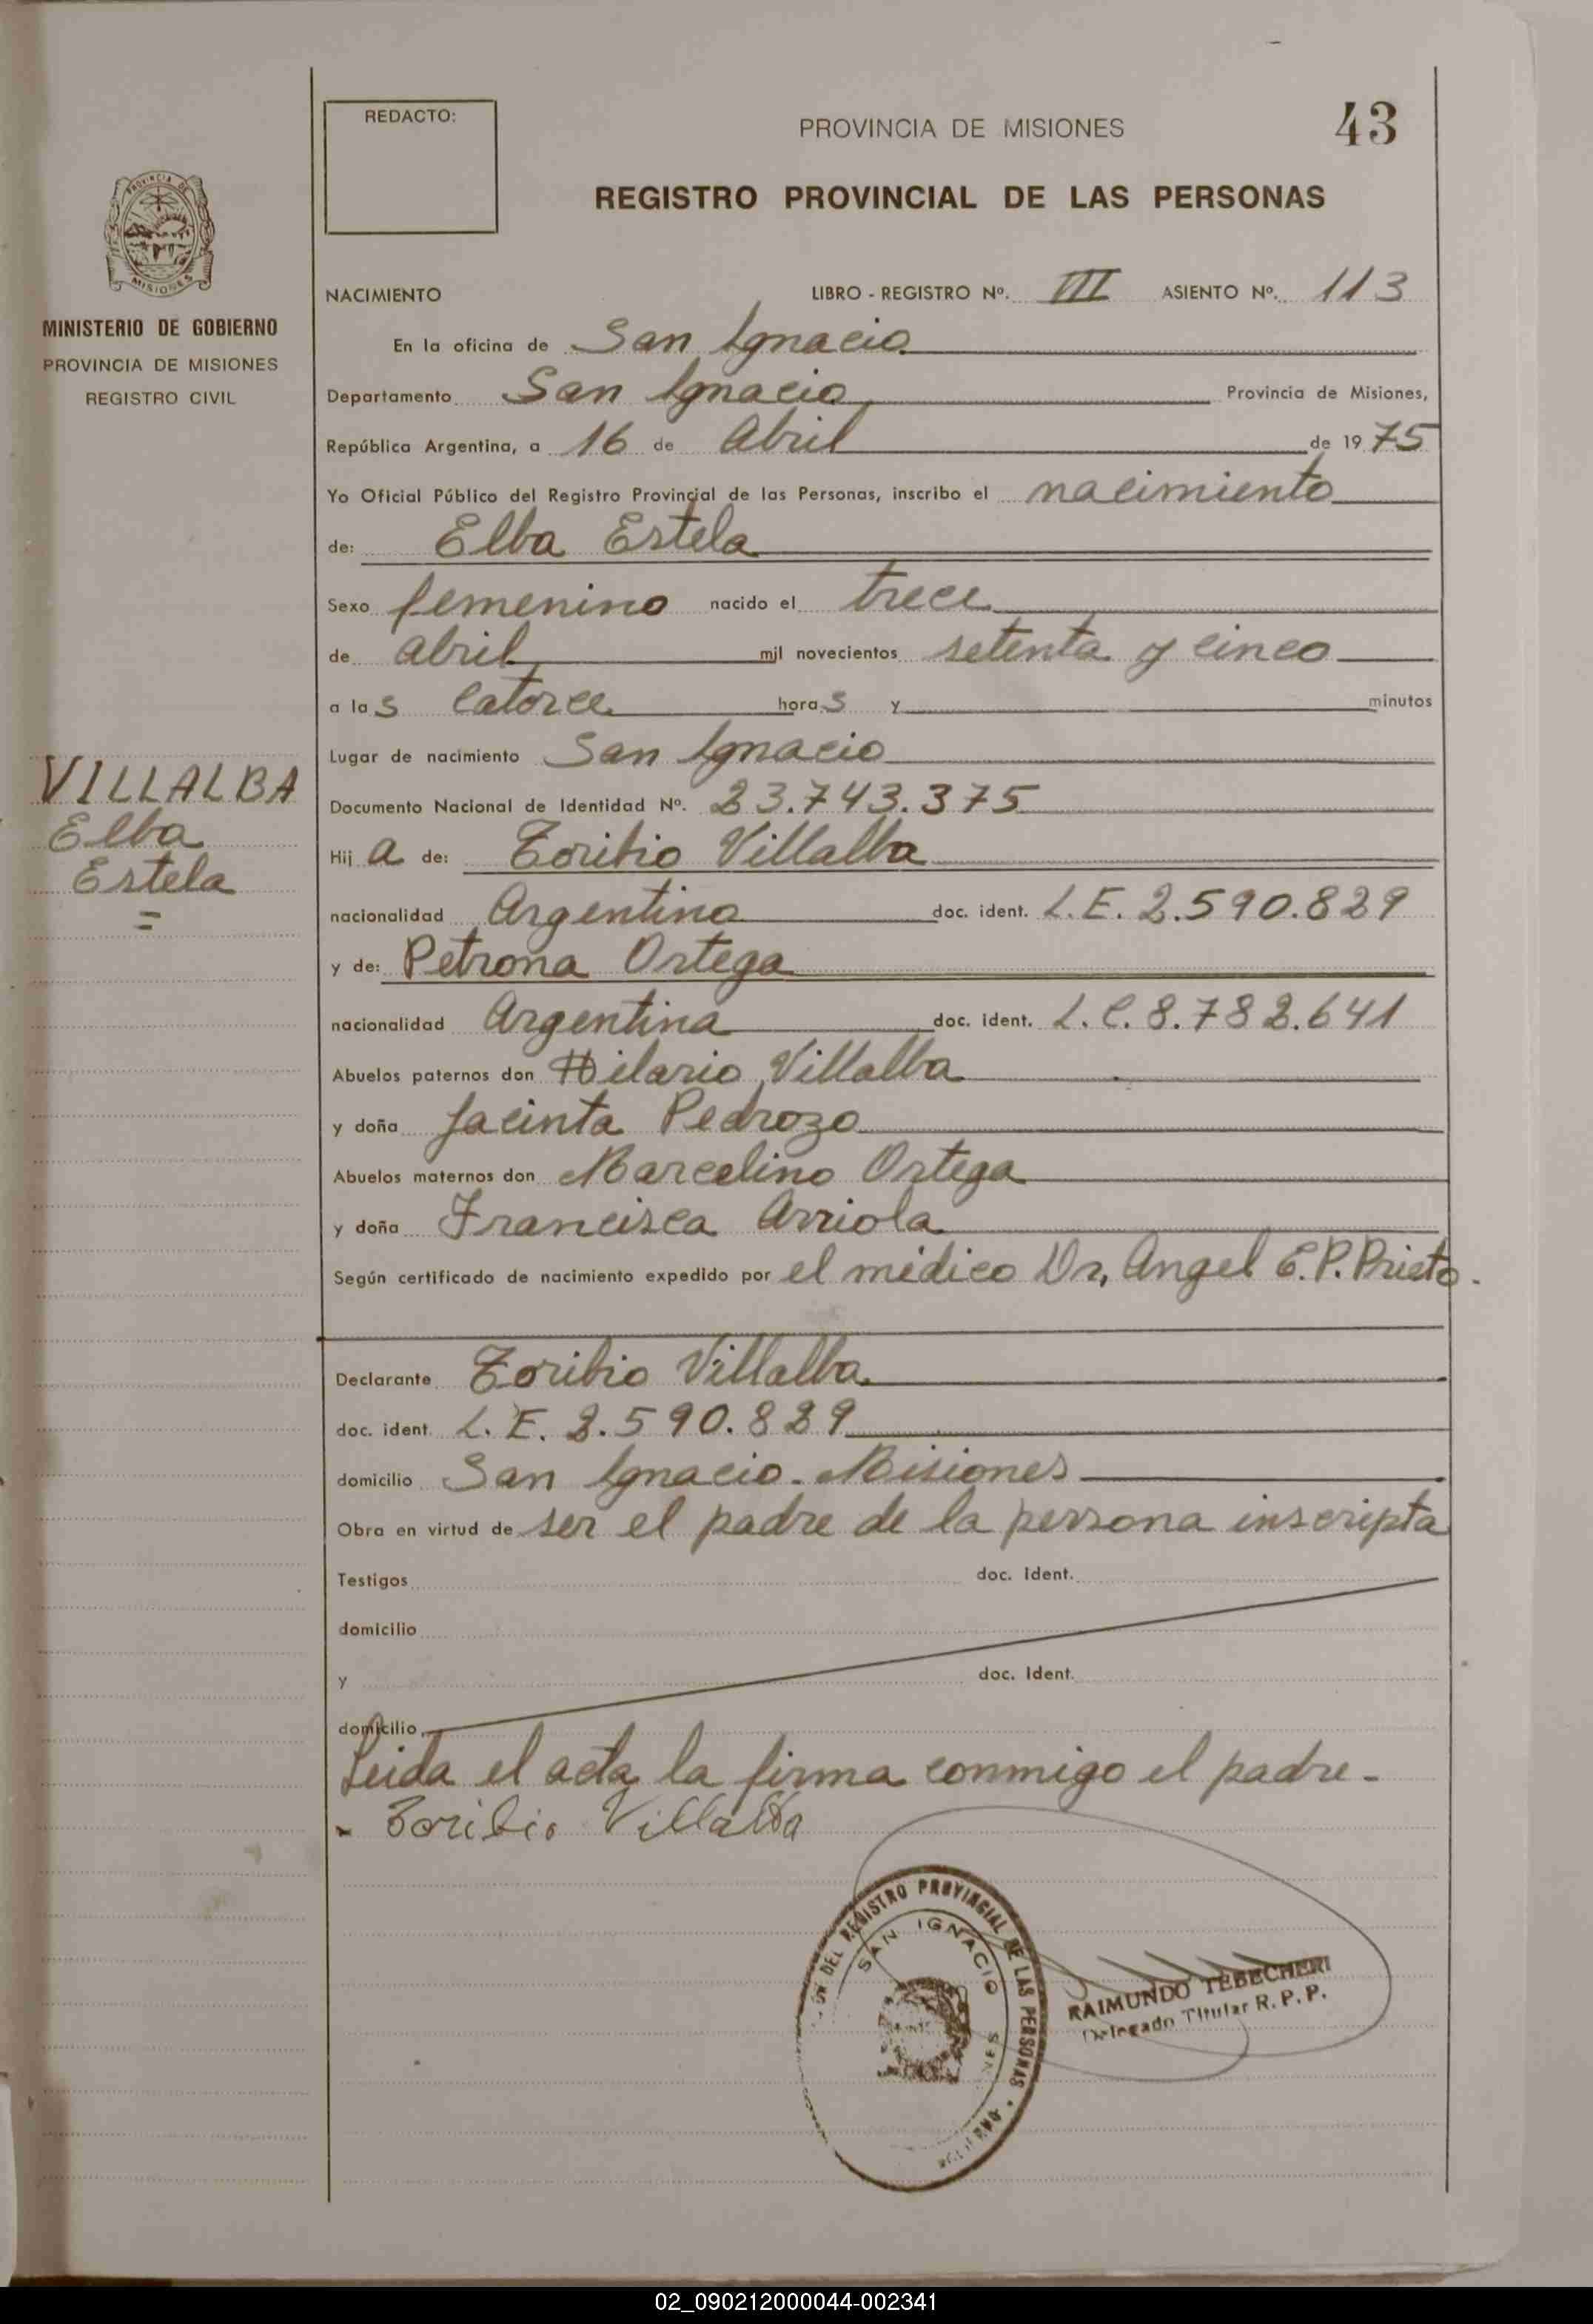 REDACTO:
PROVINCIA DE MISIONES
43
REGISTRO PROVINCIAL DE LAS PERSONAS
PROVINCIA DE
MISIONES
MINISTERIO DE GOBIERNO
PROVINCIA DE MISIONES
REGISTRO CIVIL
VILLALBA
Elba
Estela
=
NACIMIENTO LIBRO - REGISTRO Nº. VII ASIENTO Nº. 113
En la oficina de San Ignacio
Departamento San Ignacio Provincia de Misiones,
República Argentina, a 16 de Abril de 19 75
Yo Oficial Público del Registro Provincial de las Personas, inscribo el nacimiento
de: Elba Estela
Sexo femenino nacido el trece
de abril mil novecientos setenta y cinco
a las catorce horas y minutos
Lugar de nacimiento San Ignacio
Documento Nacional de Identidad Nº. 23.743.375
Hij a de: Toribio Villalba
nacionalidad Argentino doc. ident. L.E. 2.590.829
y de: Petrona Ortega
nacionalidad Argentina doc. ident. L.C. 8.782.641
Abuelos paternos don Hilario Villalba
y doña Jacinta Pedrozo
Abuelos maternos don Marcelino Ortega
y doña Francisca Arriola
Según certificado de nacimiento expedido por el médico Dr, Angel E.P. Prieto.
Declarante Toribio Villalba
doc. ident. L.E. 2.590.829
domicilio San Ignacio - Misiones
Obra en virtud de ser el padre de la persona inscripta
Testigos doc. Ident.
domicilio
y doc. Ident.
domicilio
Leida el acta la firma conmigo el padre.-
Toribio Villalba
DEL REGISTRO PROVINCIAL DE LAS PERSONAS
SAN IGNACIO
RAIMUNDO TEBECHERI
Delegado Titular R. P. P.
02_090212000044-002341